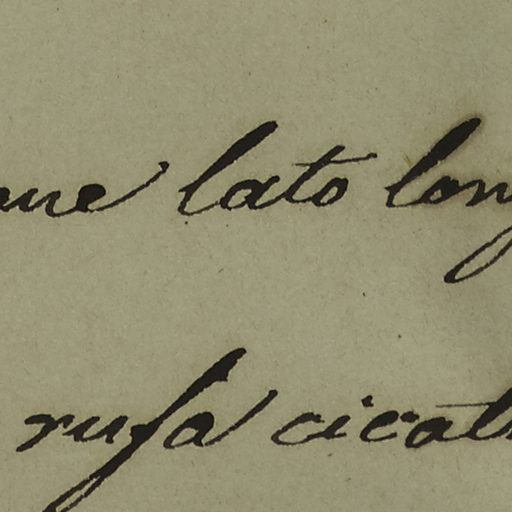 lato long
rufa cicat